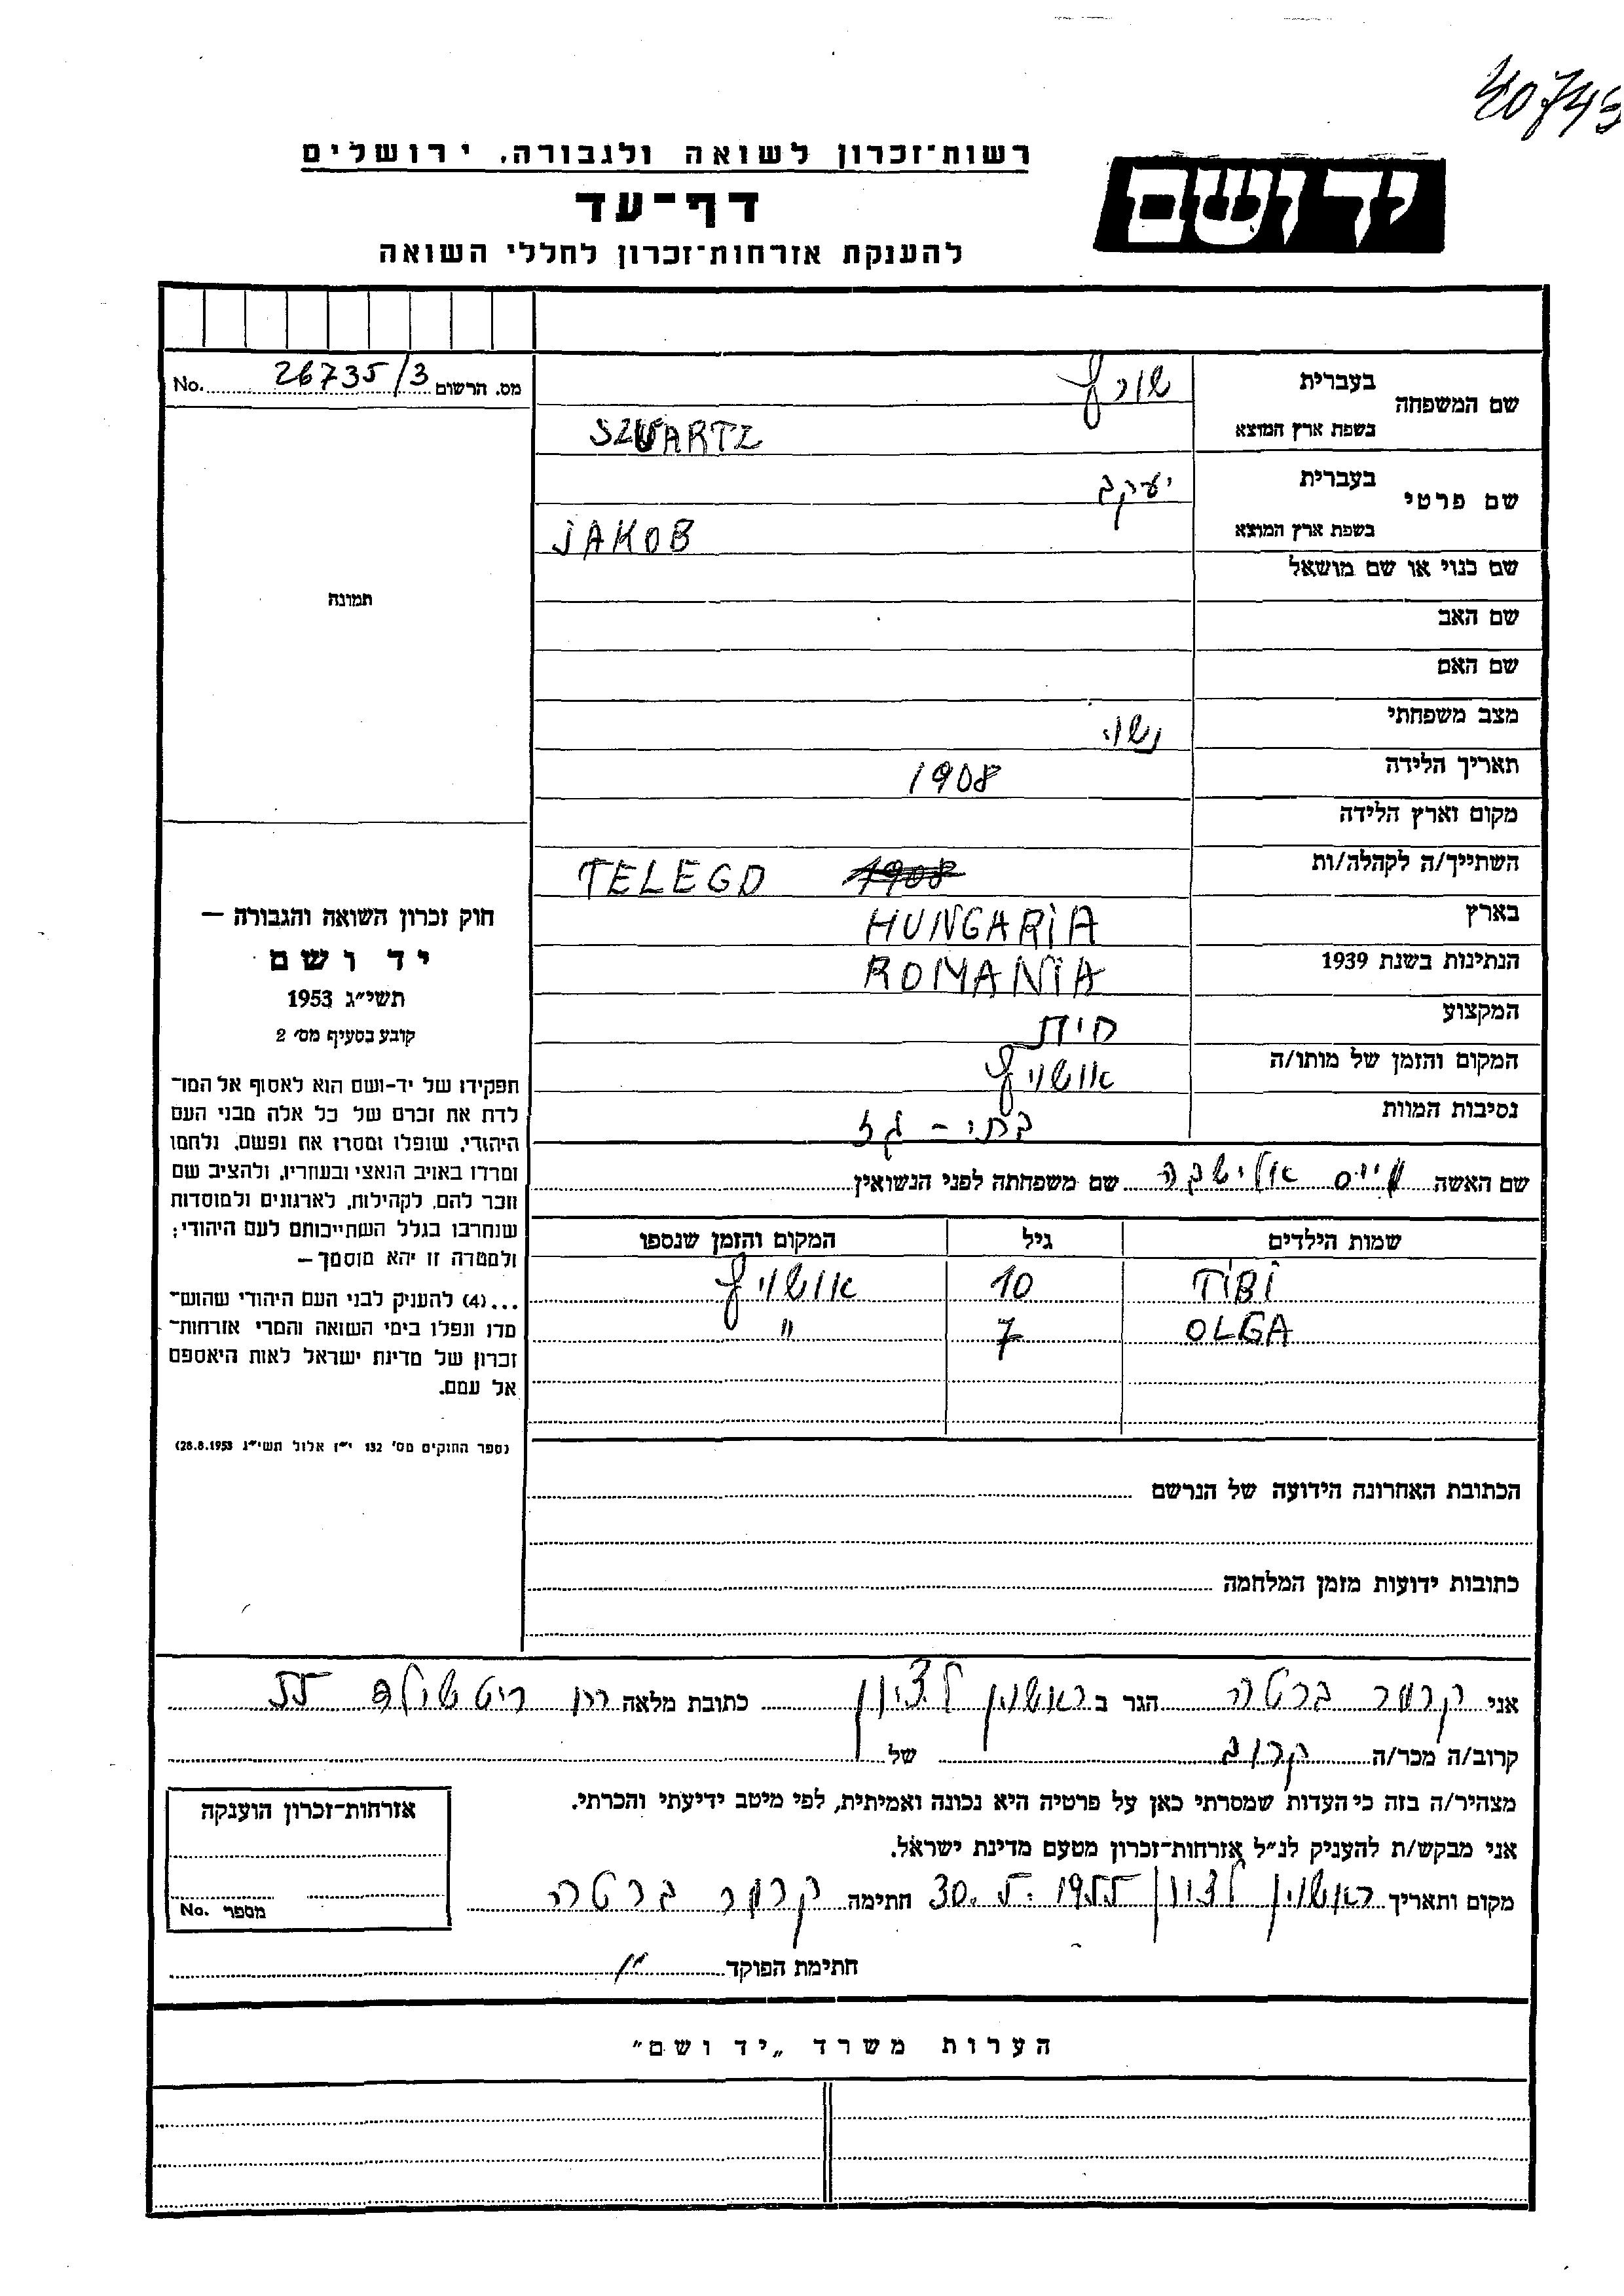 40745
רשות־זכרון לשואה ולגבורה, ירושלים
יד ושם
דף־עד
להענקת אזרחות־זכרון לחללי השואה
מס. הרשום 26735/3 No.
שם המשפחה
בעברית שורץ
בשפת ארץ המוצא SZWARTZ
שם פרטי
בעברית יעקב
בשפת ארץ המוצא JAKOB
שם כנוי או שם מושאל
שם האב
שם האם
מצב משפחתי נשוי
תאריך הלידה 1908
מקום וארץ הלידה
השתייך/ה לקהלה/ות 1908 TELEGD
בארץ HUNGARIA
הנתינות בשנת 1939 ROMANIA
המקצוע חיט
המקום והזמן של מותו/ה אושויץ
נסיבות המוות בתי - גז
שם האשה וייס אלישבה שם משפחתה לפני הנשואין
שמות הילדים גיל המקום והזמן שנספו
TIBI 10 אושויץ
OLGA 7 "
הכתובת האחרונה הידועה של הנרשם
כתובות ידועות מזמן המלחמה
תמונה
חוק זכרון השואה והגבורה —
יד ושם
תשי״ג 1953
קובע בסעיף מס׳ 2
תפקידו של יד-ושם הוא לאסוף אל המו־
לדת את זכרם של כל אלה מבני העם
היהודי, שנפלו ומסרו את נפשם, נלחמו
ומרדו באויב הנאצי ובעוזריו, ולהציב שם
וזכר להם, לקהילות, לארגונים ולמוסדות
שנחרבו בגלל השתייכותם לעם היהודי;
ולמטרה זו יהא מוסמך—
...(4) להעניק לבני העם היהודי שהוש־
מדו ונפלו בימי השואה והמרי אזרחות־
זכרון של מדינת ישראל לאות היאספם
אל עמם.
(ספר החוקים מס׳ 132 י״ז אלול תשי״ג 28.8.1953)
אני קרמר ברטה הגר ב ראשון לציון כתובת מלאה רח רוטשילד 55
קרוב/ה מכר/ה קרוב של
מצהיר/ה בזה כי העדות שמסרתי כאן על פרטיה היא נכונה ואמיתית, לפי מיטב ידיעתי והכרתי.
אני מבקש/ת להעניק לנ״ל אזרחות־זכרון מטעם מדינת ישראל.
מקום ותאריך ראשון לציון 30.5.1955 חתימה קרמר ברטה
חתימת הפוקד
אזרחות־זכרון הוענקה
מספר No.
הערות משרד „יד ושם״